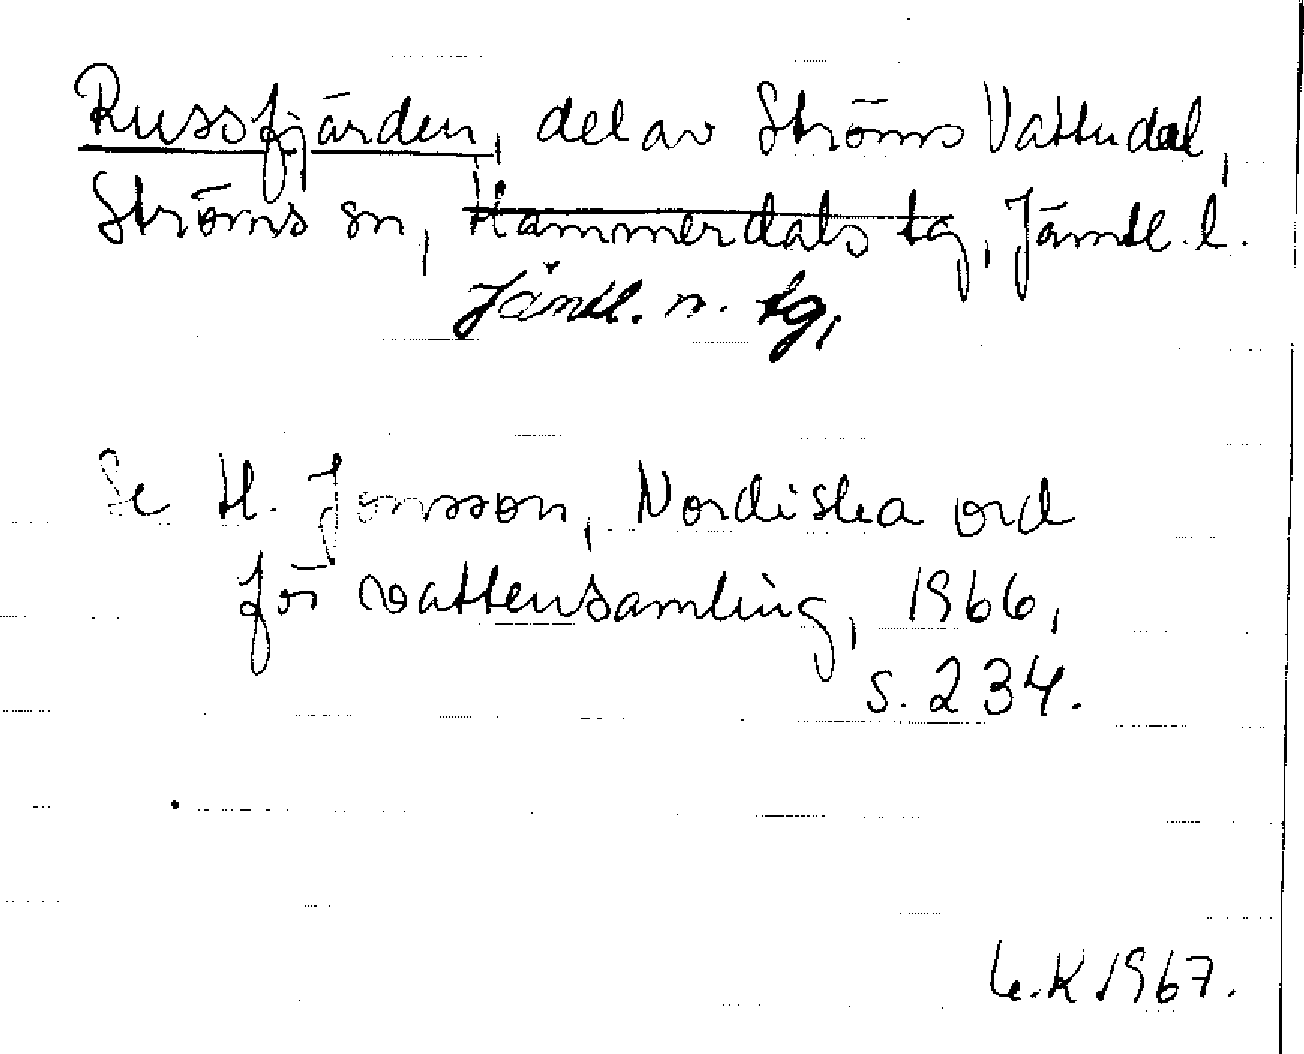 Russfjärden, del av Ströms Vattudal,
Ströms sn, Hammerdals tg, Jämtl. l.
Jämtl. n. tg,
Se H. Jonsson, Nordiska ord
för vattensamling, 1966,
s. 234.
K 1967.